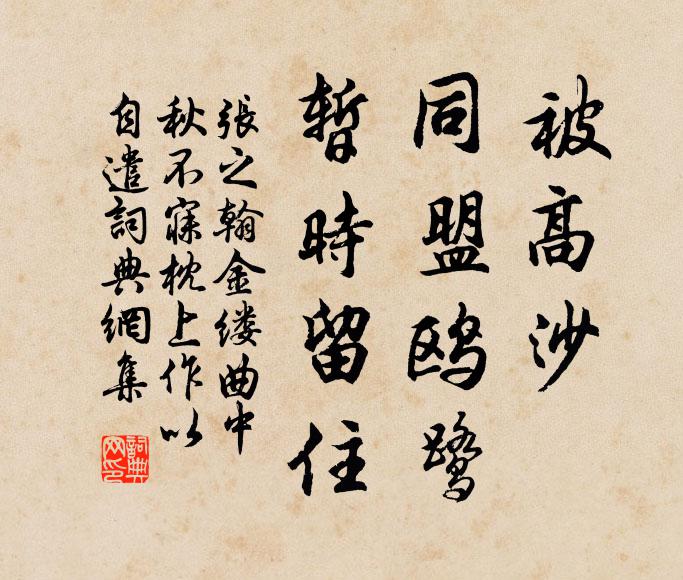 被高沙
同盟鸥鹭
暫時留住
張之翰金缕曲中
秋不寐枕上作以
自遣詞典網集
詞典网印